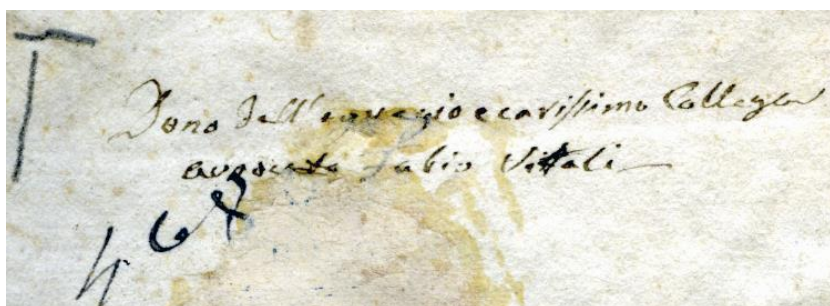 Dono dell'egregio e carissimo Collega
avvocato Fabio Vitali